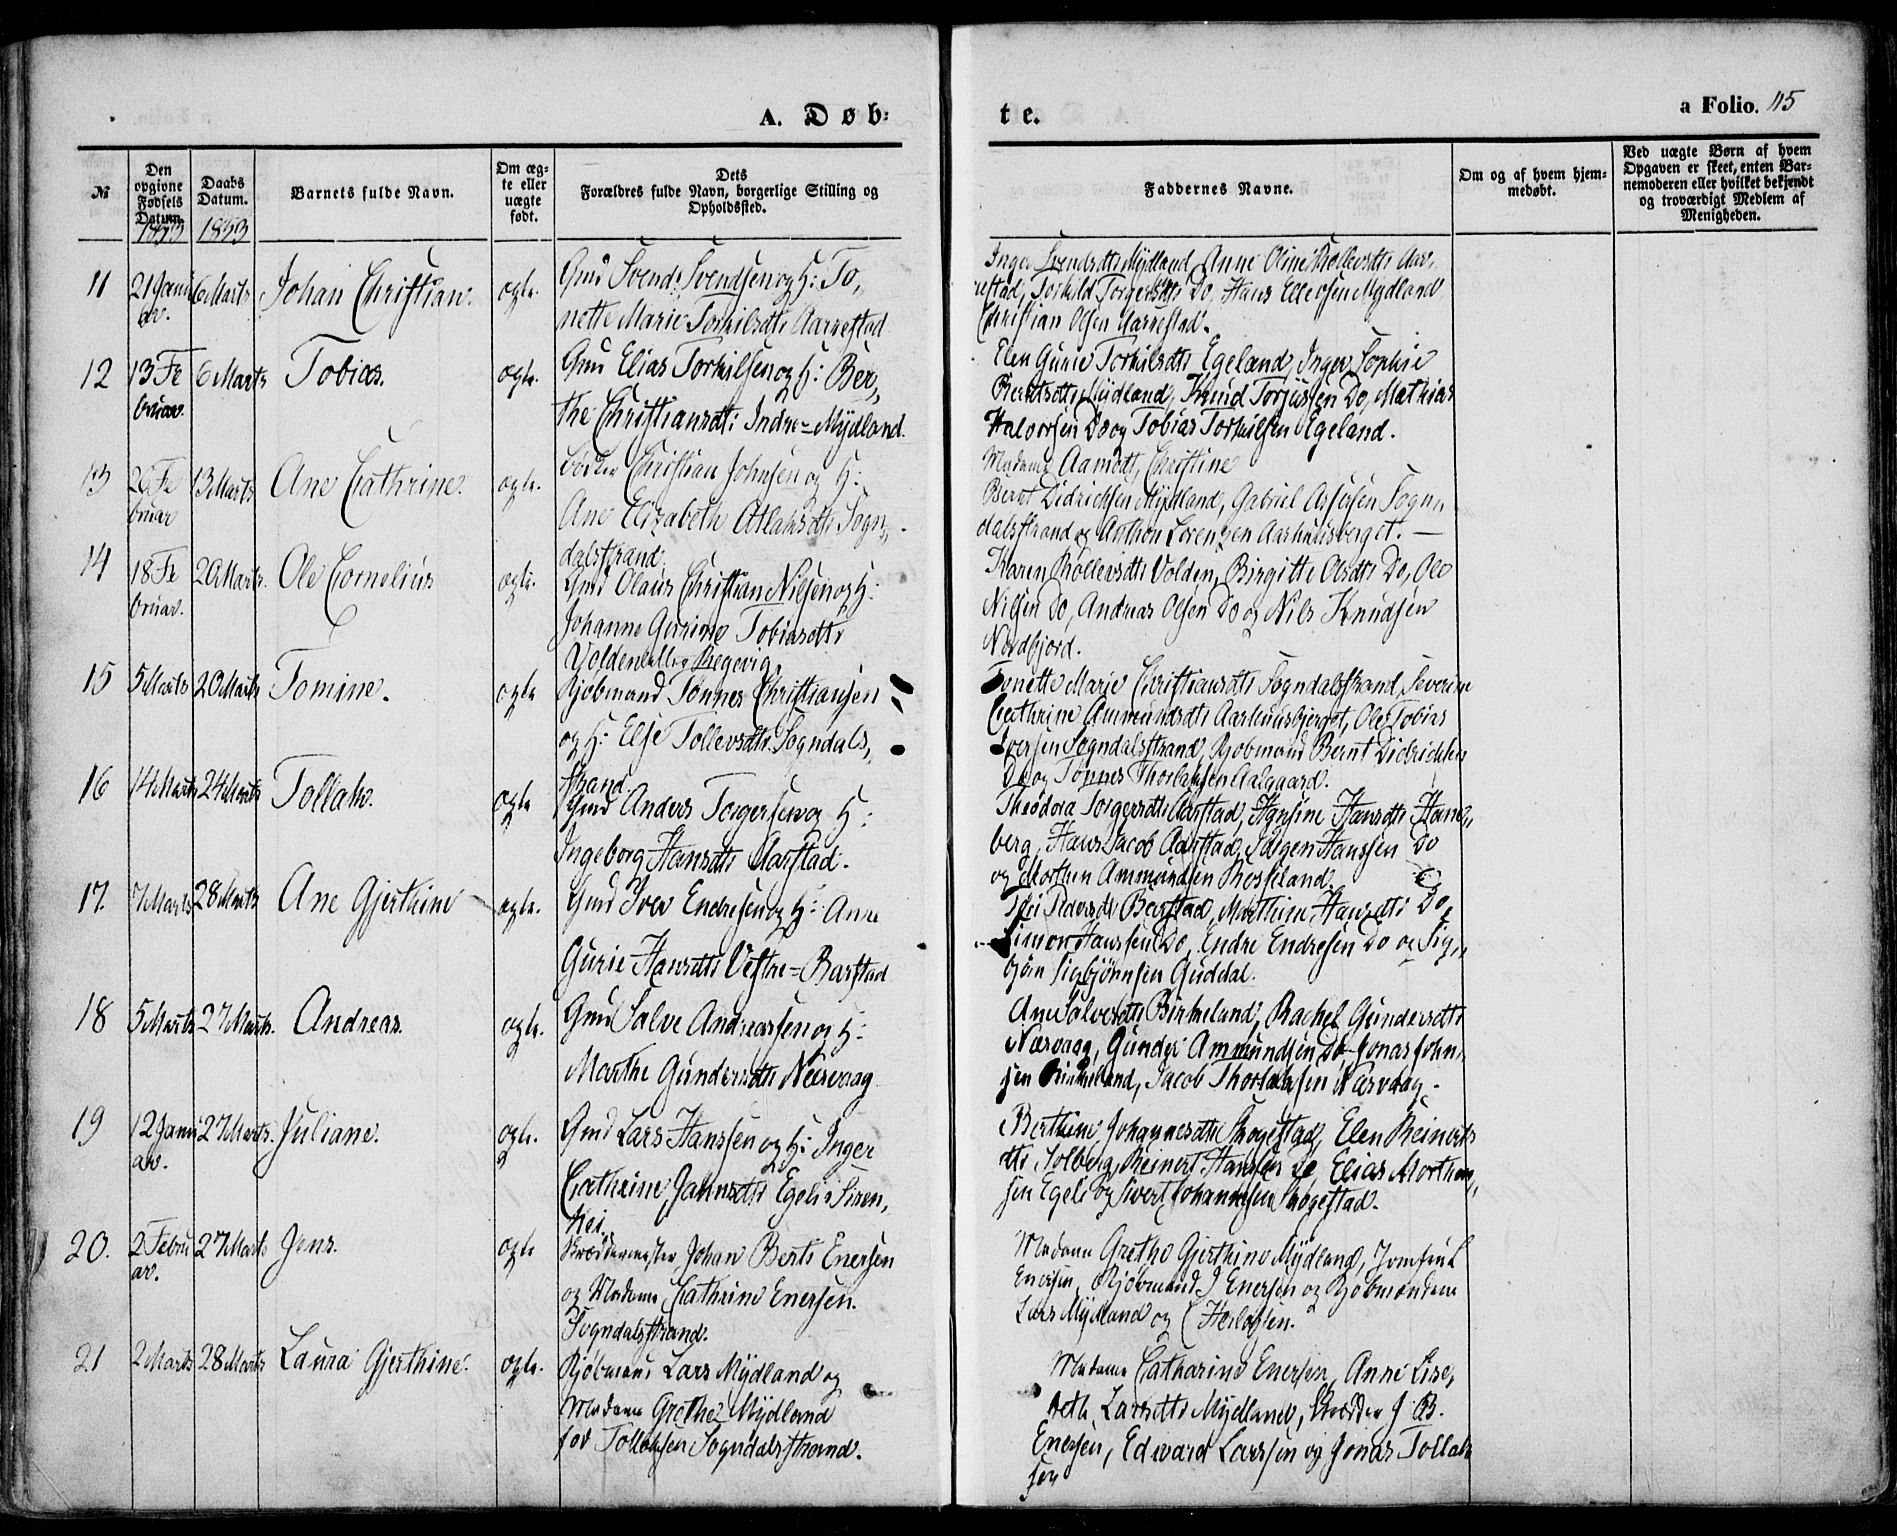 A. Døb-
te.
a Folio. 115
№
Den opgivne Fødsels Datum. 1853
Daabs Datum. 1853
Barnets fulde Navn.
Om ægte eller uægte født.
Dets Forældres fulde Navn, borgerlige Stilling og Opholdssted.
Faddernes Navne.
Om og af hvem hjemmedøbt.
Ved uægte Børn af hvem Opgaven er skeet, enten Barnemoderen eller hvilket bekjendt og troværdigt Medlem af Menigheden.
11 21 Janu 6 Marts Johan Christian. ægte. Gmd Svend Svendsen og H: To,
ar. nette Marie Torkilsdtr Aarrestad
Inger Svendsdtr Mydland, Anne Oline Rollevsdtr Aar,
restad, Torkild Torgersdtr Do, Hans Ellevsen Mydland
Christian Olsen Aarrestad.
12 13 Fe 6 Marts Tobias. ægte. Gmd Elias Torkilsen og H: Ber,
bruar. the Christiansdt: Indre=Mydland.
Elen Gurie Torkilsdtr Egeland, Inger Sophie
Berntsdtr Mydland, Knud Torjussen Do, Mathias
Halvorsen Do og Tobias Torkilsen Egeland.
13 26 Fe 13 Marts Ane Cathrine. ægte. Christian Johnsen og H:
bruar Ane Elizabeth Atlaksdtr Sogn,,
dalsstrand.
Madame Aamodt, Christine
Bernt Didrichsen Mydland, Gabriel Assersen Sogn,,
dalsstrand og Anthon Lorentzen Aarhuusberget. —
14 18 Fe 20 Marts. Ole Cornelius ægte. Gmd Olaus Christian Nilsen og H:
bruar. Johanne Tobiasdtr
Volden eller Regevig.
Karen Rollevsdtr Volden, Birgitte Olsdtr Do, Ole
Nilsen Do, Andreas Olsen Do og Nils Knudsen
Nordfjord.
15 5 Marts 20 Marts Tomine. ægte Kjøbmand Tønnes Christiansen
og H: Else Tollevsdtr Sogndals,,
strand.
Tonette Marie Christiansdtr Sogndalsstrand, Severine
Cathrine Ammundsdtr Aarhuusbjerget, Ole Tobias
Iversen Sogndalsstrand, Kjøbmand Bernt Didrichsen
Do og Tønnes Thorlaksen Aalgaard.
16 14 Marts 24 Marts Tollak. ægte Gmd Anders Torgersen og H:
Ingeborg Hansdtr Aarstad.
Theodora Torgersdtr Aarstad, Hansine Hansdtr Hane,,
berg, Hans Jacob Aarstad, Salgen Hanssen Do
og Morthen Ammundsen Rosseland.
17. 7 Marts 28 Marts Ane Gjerthine ægte. Gmd Iver Endresen og H: Anne
Gurie Hansdtr Vestre=Barstad
Pedersdt Barstad, Marthine Hansdtr Do,
Simon Hanssen Do, Endre Endresen Do og Sig,,
bjørn Sigbjørnsen Guddal.
18 5 Marts 27 Marts. Andreas. ægte. Gmd Salve Andreassen og H:
Marthe Gundersdtr Nærvaag
Ane Salvesdtr Birkeland, Rachel Gundersdtr
Nærvaag, Gunder Ammundsen Do Jonas John,
sen Birkeland, Jacob Thorlaksen Nærvaag.
19 12 Janu 27 Marts. Juliane. ægte. Gmd Lars Hanssen og H: Inger
ar. Cathrine Jahnsdtr Egeli i Siren,
Hei.
Berthine Johannesdtr Skogestad, Elen Reinerts
dtr Solberg, Reinert Hanssen Do, Elias Morthen,,
sen Egeli og Sivert Johannesen Skogestad.
20. 2 Febru 27 Marts Jens. ægte Skrædermester Johan Berts Enersen
ar. og Madame Cathrine Enersen.
Sogndalsstrand.
Madame Grethe Gjerthine Mydland, Jomfru L
Enersen, Kjøbmand J Enersen og Kjøbmændene
Lars Mydland og C Herlofsen.
21 2 Marts 28 Marts Laura Gjerthine. ægte. Kjøbmand Lars Mydland og
Madame Grethe Mydland
fød Tollaksen Sogndalsstrand.
Madame Catharine Enersen, Anne Lise,
beth Larsdtr Mydland, Skrædder J. B.
Enersen, Edward Larssen og Jonas Tollak
sen